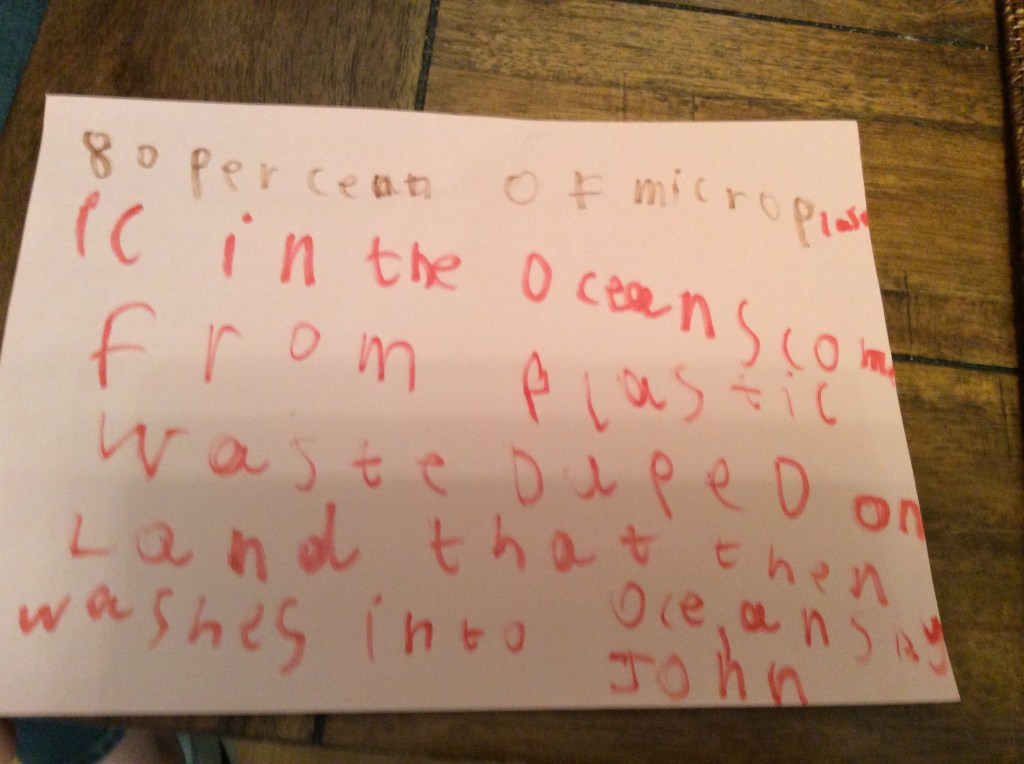 80 percean OF microplast
IC in the Oceans come
From plastic
waste DupeD on
Land that then
washes into Oceans by
John